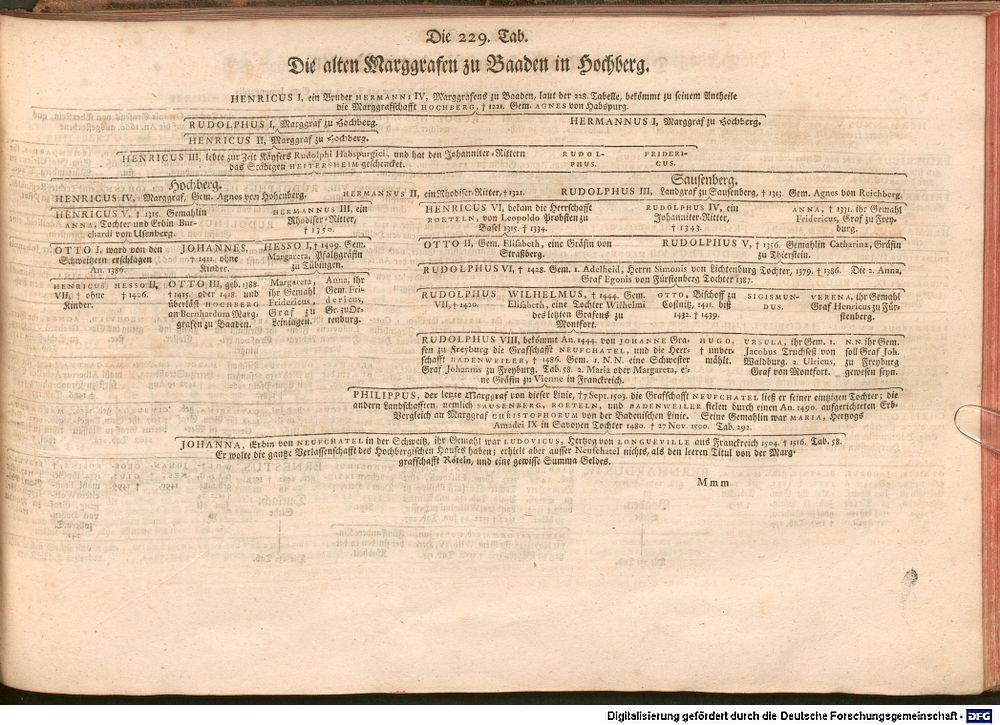 Die 229. Tab.
Die alten Marggrafen zu Baaden in Hochberg.
HENRICUS I, ein Bruder HERMANNI IV, Marggrafens zu Baaden, laut der 228. Tabelle, bekömmt zu seinem Antheile
die Marggrafschafft HOCHBERG, † 1221. Gem. AGNES von Habspurg.
RUDOLPHUS I, Marggraf zu Hochberg.
HERMANNUS I, Marggraf zu Hochberg.
HENRICUS II, Marggraf zu Hochberg.
HENRICUS III, lebte zur Zeit Käysers Rudolphi Habspurgici, und hat den Johanniter-Rittern
das Städtgen HEITERSHEIM geschencket.
RUDOL-
PHUS.
FRIDERI-
CUS.
Hochberg.
HENRICUS IV, Marggraf, Gem. Agnes von Hohenberg.
HERMANNUS II, ein Rhodiser-Ritter, † 1321.
Sausenberg.
RUDOLPHUS III, Landgraf zu Sausenberg, † 1313. Gem. Agnes von Reichberg.
HENRICUS V, † 1315. Gemahlin
ANNA, Tochter und Erbin Bur-
chardi von Usenberg.
HERMANNUS III, ein
Rhodiser-Ritter,
† 1350.
HENRICUS VI, bekam die Herrschafft
ROETELN, von Leopoldo Probsten zu
Basel 1315. † 1334.
RUDOLPHUS IV, ein
Johanniter-Ritter,
† 1343.
ANNA, † 1331. ihr Gemahl
Fridericus, Graf zu Frey-
burg.
OTTO I, ward von den
Schweitzern erschlagen
An. 1386.
JOHANNES,
† 1411. ohne
Kinder.
HESSO I, † 1409. Gem.
Margareta, Pfaltzgräfin
zu Tübingen.
OTTO II, Gem. Elisabeth, eine Gräfin von
Straßberg.
RUDOLPHUS V, † 1356. Gemahlin Catharina, Gräfin
zu Thierstein.
RUDOLPHUS VI, † 1428. Gem. 1. Adelheid, Herrn Simonis von Lichtenburg Tochter, 1379. † 1386. Die 2. Anna,
Graf Egonis von Fürstenberg Tochter 1387.
HENRICUS
VII, † ohne
Kinder.
HESSO II,
† 1406.
OTTO III, geb. 1388.
† 1415. oder 1418. und
überläst HOCHBERG
an Bernhardum Marg-
grafen zu Baaden.
Margareta,
ihr Gemahl
Fridericus,
Graf zu
Leiningen.
Anna, ihr
Gem. Fri-
dericus,
Gr. zu Or-
tenburg.
RUDOLPHUS
VII, † 1420.
WILHELMUS, † 1444. Gem.
Elisabeth, eine Tochter Wilhelmi
des letzten Grafens zu
Montfort.
OTTO, Bischoff zu
Costnitz, 1411. biß
1432. † 1439.
SIGISMUN-
DUS.
VERENA, ihr Gemahl
Graf Henricus zu Für-
stenberg.
RUDOLPHUS VIII, bekömmt An. 1444. von JOHANNE Gra-
fen zu Freyburg die Grafschafft NEUFCHATEL, und die Herr-
schafft BADENWEILER, † 1486. Gem. 1. N.N. eine Schwester
Graf Johannis zu Freyburg. Tab. 58. 2. Maria oder Margareta, ei-
ne Gräfin zu Vienne in Franckreich.
HUGO,
† unver-
mählt.
URSULA, ihr Gem. 1.
Jacobus Truchseß von
Waldburg. 2. Ulricus,
Graf von Montfort.
N.N. ihr Gem.
soll Graf Joh.
zu Freyburg
gewesen seyn.
PHILIPPUS, der letzte Marggraf von dieser Linie, † 7 Sept. 1503. die Grafschafft NEUFCHATEL ließ er seiner eintzigen Tochter; die
andern Landschafften, nemlich SAUSENBERG, ROETELN, und BADENWEILER fielen durch einen An. 1490. aufgerichteten Erb-
Vergleich an Marggraf CHRISTOPHORUM von der Badenischen Linie. Seine Gemahlin war MARIA, Hertzogs
Amadei IX in Savoyen Tochter 1480. † 27 Nov. 1500. Tab. 292.
JOHANNA, Erbin von NEUFCHATEL in der Schweitz, ihr Gemahl war LUDOVICUS, Hertzog von LONGUEVILLE aus Franckreich 1504. † 1516. Tab. 58.
Er wolte die gantze Verlassenschafft des Hochbergischen Hauses haben; erhielt aber ausser Neufchatel nichts, als den leeren Titul von der Marg-
grafschafft Röteln, und eine gewisse Summa Geldes.
Mmm
Digitalisierung gefördert durch die Deutsche Forschungsgemeinschaft - DFG